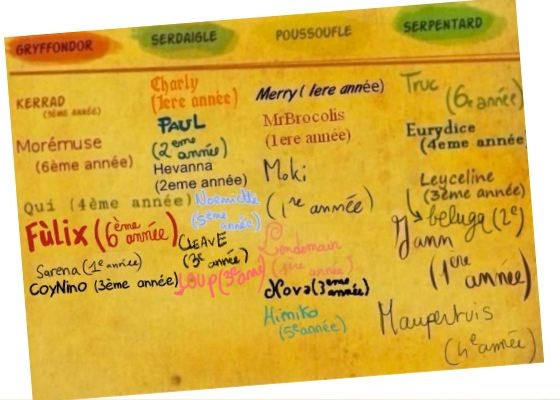 GRYFFONDOR
KERRAD
(3ème année)
Morémuse
(6ème année)
Qui (4ème année)
Fùlix (6ème année)
Sarena (1e année)
CoyNino (3ème année)
SERDAIGLE
Charly
(1ere année)
PAUL
(2eme année)
Hevanna
(2eme année)
Noemidte
(5ème année)
CLEAVE
(3e année)
Loup (3e année)
POUSSOUFLE
Merry (1ere année)
MrBrocolis
(1ere année)
Moki
(1re année)
Lendemain
(1ère année)
Nova (3eme année)
Himiko
(5e année)
SERPENTARD
Truc
(6e année)
Eurydice
(4eme année)
Leyceline
(3ème année)
beluga (2e)
Yann
(1ere année)
Maupertuis
(4e année)